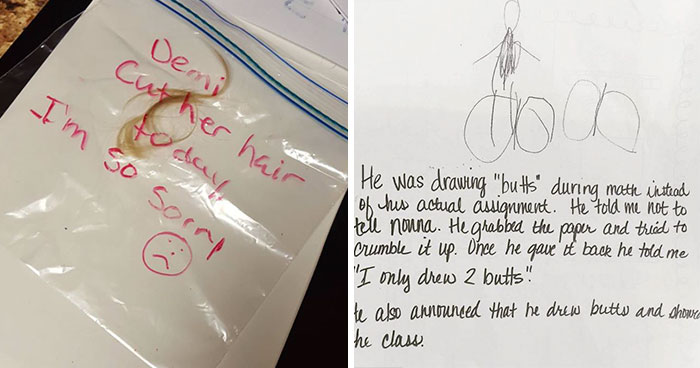 Demi
Cut her hair
today!
I'm so sorry
He was drawing "butts" during math instead
of his actual assignment. He told me not to
tell nonna. He grabbed the paper and tried to
crumble it up. Once he gave it back he told me
"I only drew 2 butts".
He also announced that he drew butts and showe
he class.